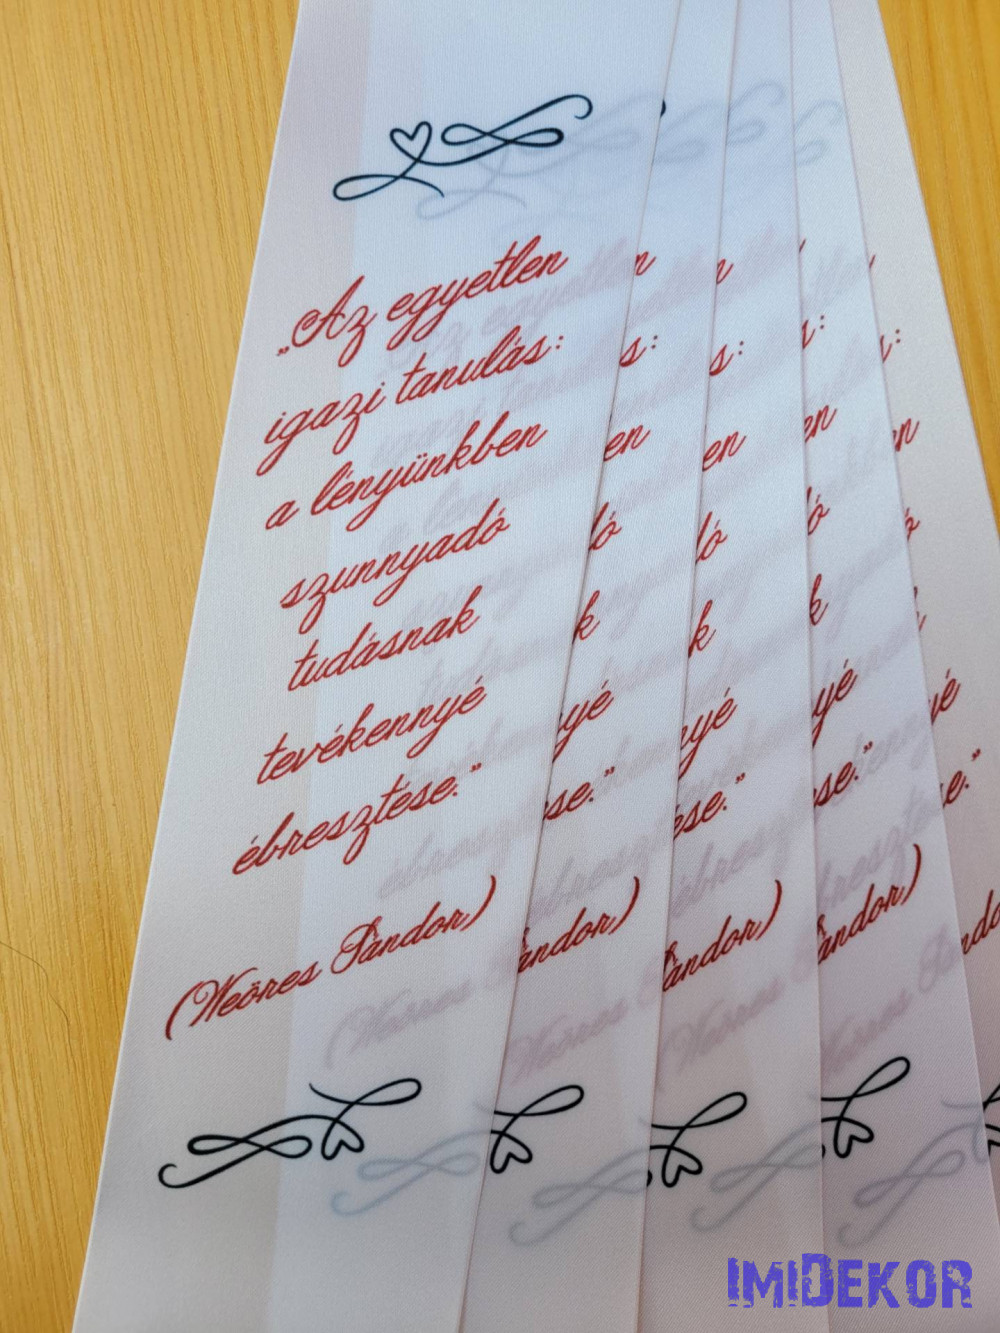 „Az egyetlen
igazi tanulás:
a lényünkben
szunnyadó
tudásnak
tevékennyé
ébresztése.”
(Weöres Sándor)
IMIDEKOR